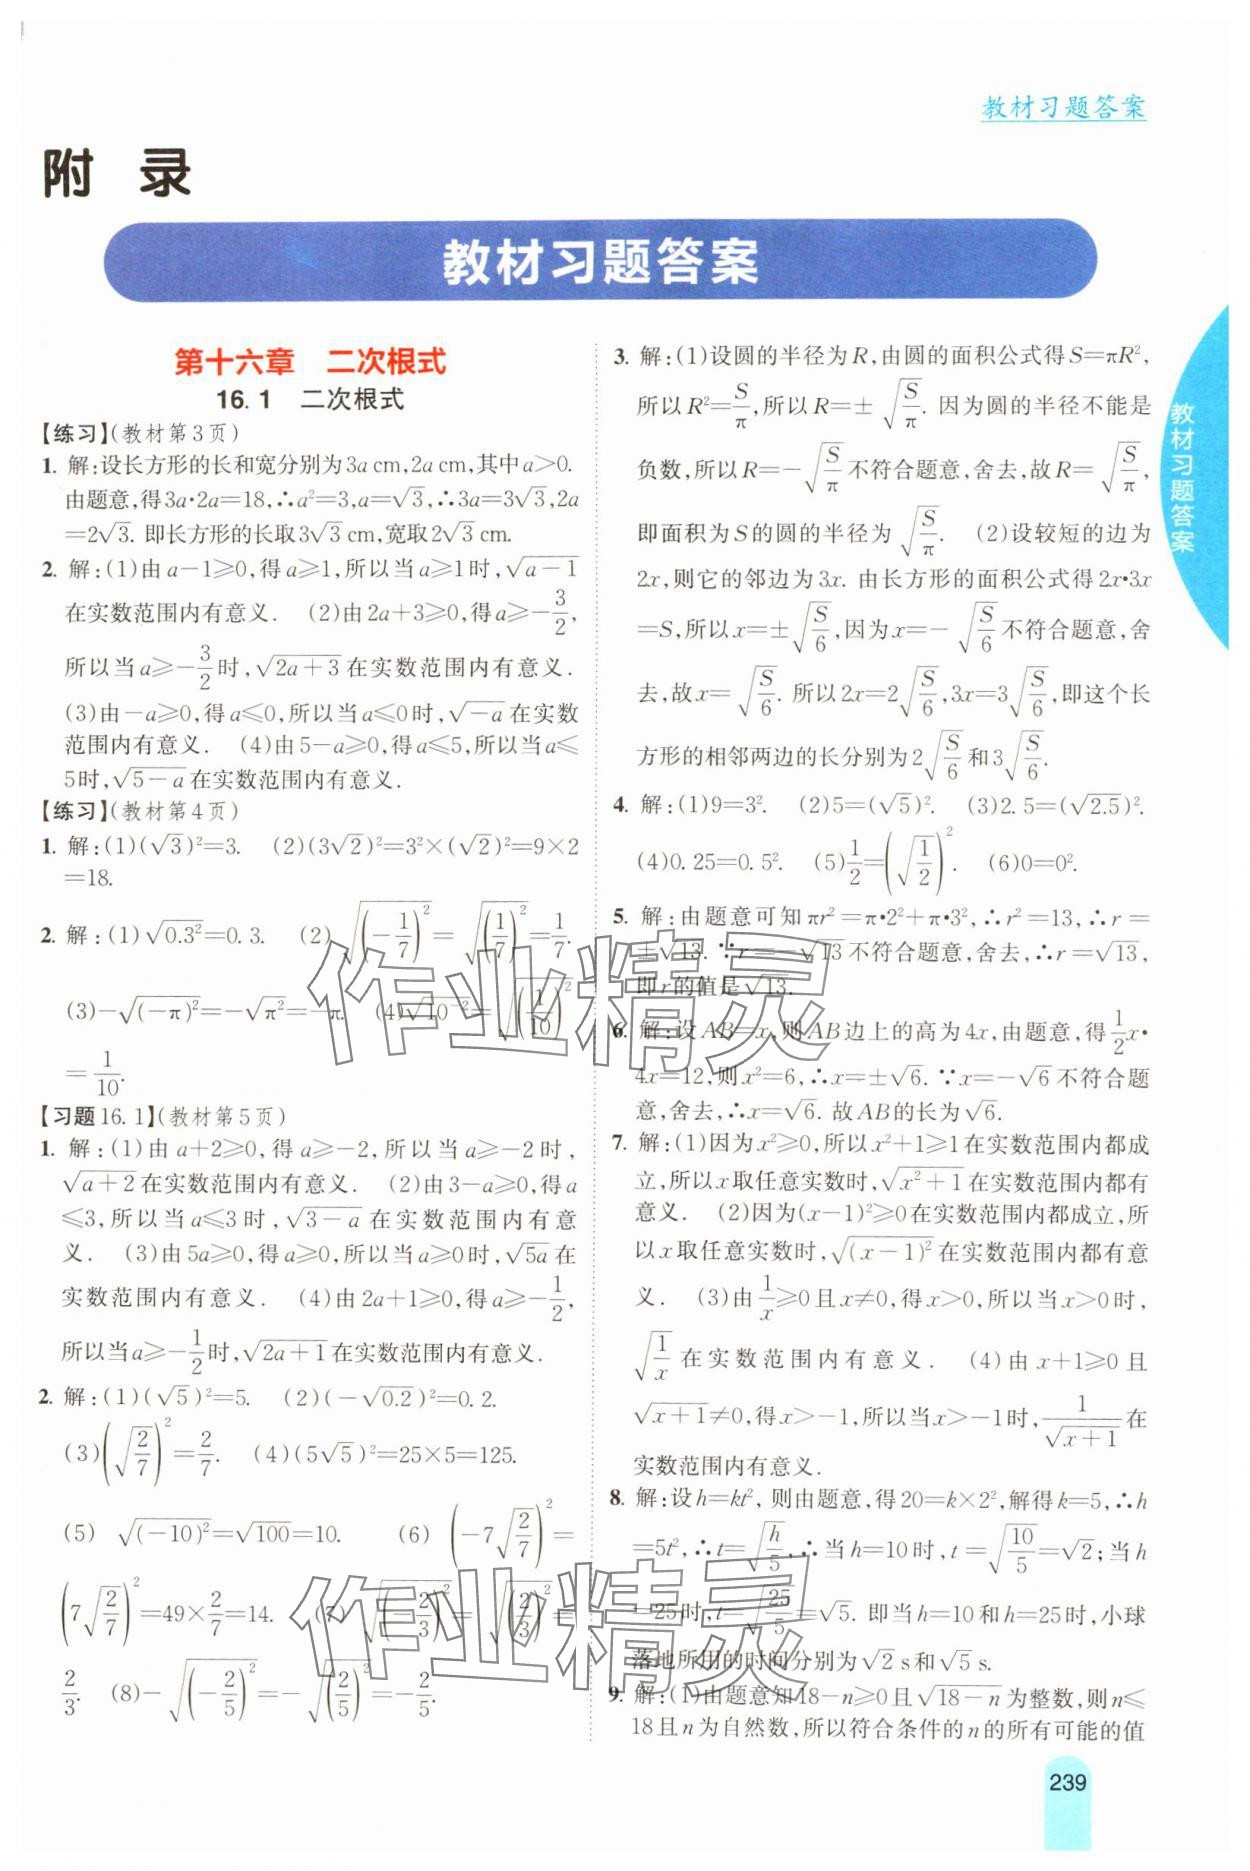 教材习题答案
附 录
教材习题答案
第十六章 二次根式
16.1 二次根式
【练习】(教材第3页)
1. 解:设长方形的长和宽分别为3a cm,2a cm,其中a>0.
由题意,得3a·2a=18,∴a²=3,a=√3,∴3a=3√3,2a
=2√3. 即长方形的长取3√3 cm,宽取2√3 cm.
2. 解:(1)由a-1≥0,得a≥1,所以当a≥1时,√(a-1)
在实数范围内有意义. (2)由2a+3≥0,得a≥-3/2,
所以当a≥-3/2时,√(2a+3)在实数范围内有意义.
(3)由-a≥0,得a≤0,所以当a≤0时,√(-a)在实数
范围内有意义. (4)由5-a≥0,得a≤5,所以当a≤
5时,√(5-a)在实数范围内有意义.
【练习】(教材第4页)
1. 解:(1)(√3)²=3. (2)(3√2)²=3²×(√2)²=9×2
=18.
2. 解:(1)√(0.3²)=0.3. (2)√((-1/7)²)=√((1/7)²)=1/7.
(3)-√((-π)²)=-√(π²)=-π. (4)√(10⁻²)=√((1/10)²)
=1/10.
【习题16.1】(教材第5页)
1. 解:(1)由a+2≥0,得a≥-2,所以当a≥-2时,
√(a+2)在实数范围内有意义. (2)由3-a≥0,得a
≤3,所以当a≤3时,√(3-a)在实数范围内有意
义. (3)由5a≥0,得a≥0,所以当a≥0时,√(5a)在
实数范围内有意义. (4)由2a+1≥0,得a≥-1/2,
所以当a≥-1/2时,√(2a+1)在实数范围内有意义.
2. 解:(1)(√5)²=5. (2)(-√0.2)²=0.2.
(3)(√(2/7))²=2/7. (4)(5√5)²=25×5=125.
(5) √((-10)²)=√100=10. (6) (-7√(2/7))²=
(7√(2/7))²=49×2/7=14. (7)√((-2/3)²)=√((2/3)²)=
2/3. (8)-√((-2/5)²)=-√((2/5)²)=-2/5.
3. 解:(1)设圆的半径为R,由圆的面积公式得S=πR²,
所以R²=S/π,所以R=±√(S/π). 因为圆的半径不能是
负数,所以R=-√(S/π)不符合题意,舍去,故R=√(S/π),
即面积为S的圆的半径为√(S/π). (2)设较短的边为
2x,则它的邻边为3x. 由长方形的面积公式得2x·3x
=S,所以x=±√(S/6),因为x=-√(S/6)不符合题意,舍
去,故x=√(S/6). 所以2x=2√(S/6),3x=3√(S/6),即这个长
方形的相邻两边的长分别为2√(S/6)和3√(S/6).
4. 解:(1)9=3². (2)5=(√5)². (3)2.5=(√2.5)².
(4)0.25=0.5². (5)1/2=(√(1/2))². (6)0=0².
5. 解:由题意可知πr²=π·2²+π·3²,∴r²=13,∴r=
±√13. ∵r=-√13不符合题意,舍去,∴r=√13,
即r的值是√13.
6. 解:设AB=x,则AB边上的高为4x,由题意,得1/2x·
4x=12,则x²=6,∴x=±√6. ∵x=-√6不符合题
意,舍去,∴x=√6. 故AB的长为√6.
7. 解:(1)因为x²≥0,所以x²+1≥1在实数范围内都成
立,所以x取任意实数时,√(x²+1)在实数范围内都有
意义. (2)因为(x-1)²≥0在实数范围内都成立,所
以x取任意实数时,√((x-1)²)在实数范围内都有意
义. (3)由1/x≥0且x≠0,得x>0,所以当x>0时,
√(1/x)在实数范围内有意义. (4)由x+1≥0且
√(x+1)≠0,得x>-1,所以当x>-1时,1/√(x+1)在
实数范围内有意义.
8. 解:设h=kt²,则由题意,得20=k×2²,解得k=5,∴h
=5t²,∴t=√(h/5),∴当h=10时,t=√(10/5)=√2;当h
=25时,t=√(25/5)=√5. 即当h=10和h=25时,小球
落地所用的时间分别为√2 s和√5 s.
9. 解:(1)由题意知18-n≥0且√(18-n)为整数,则n≤
18且n为自然数,所以符合条件的n的所有可能的值
教材习题答案
239
作业精灵
作业精灵